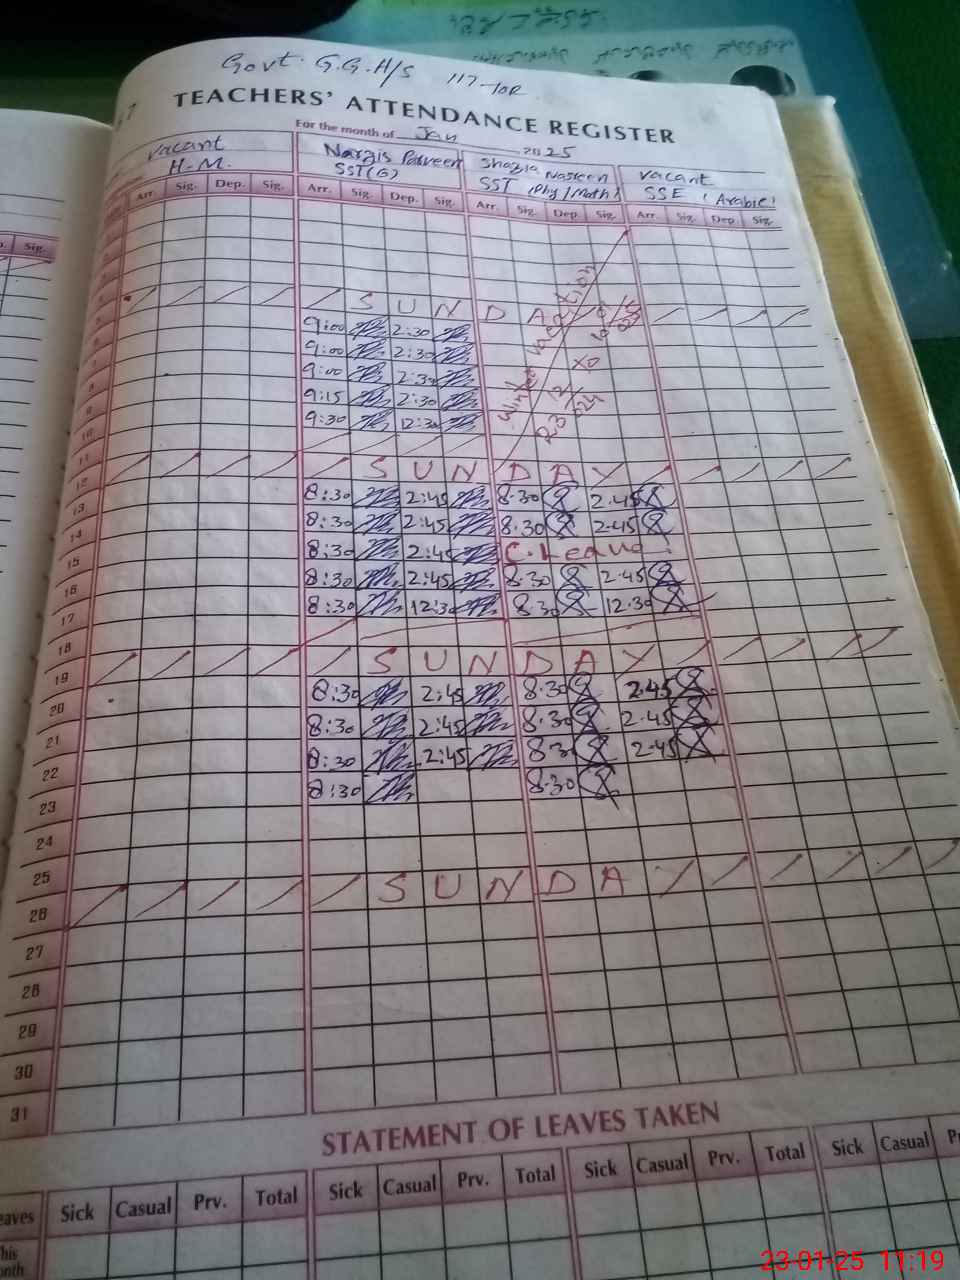 Govt. G.G.H/S 117-10R
TEACHERS' ATTENDANCE REGISTER
For the month of Jan 2025
Vacant Nargis Parveen Shazia Nasreen Vacant
H.M. SST(G) SST (Phy/Math) SSE (Arabic)
Sig. Arr. Sig. Dep. Sig. Arr. Sig. Dep. Sig. Arr. Sig. Dep. Sig. Arr. Sig. Dep. Sig.
S U N D A
9:00 2:30
9:00 2:30
9:00 2:30
9:15 2:30
9:30 12:30
Winter Vacation
23/12/24 to
10
11
S U N D A Y
12
8:30 2:45 8.30 2.45
13
8:30 2:45 8.30 2.45
14
8:30 2:45 C. Leave
15
8:30 2:45 8.30 2.45
16
8:30 12:30 8.30 12.30
17
18
S U N D A Y
19
8:30 2:45 8.30 2.45
20
8:30 2:45 8.30 2.45
21
8:30 2:45 8.30 2.45
22
8:30 8.30
23
24
25
S U N D A Y
26
27
28
29
30
31
STATEMENT OF LEAVES TAKEN
eaves Sick Casual Prv. Total Sick Casual Prv. Total Sick Casual Prv. Total Sick Casual P
his
onth
23-01-25 11:19